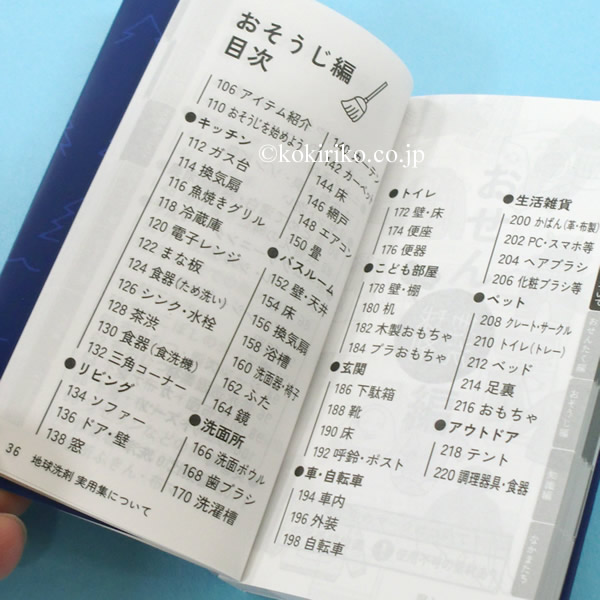 おそうじ編
目次
106 アイテム紹介
110 おそうじを始めよう
●キッチン
112 ガス台
114 換気扇
116 魚焼きグリル
118 冷蔵庫
120 電子レンジ
122 まな板
124 食器(ため洗い)
126 シンク・水栓
128 茶渋
130 食器(食洗機)
132 三角コーナー
●リビング
134 ソファー
136 ドア・壁
138 窓
142 カーペット
144 床
146 網戸
148 エアコン
150 畳
●バスルーム
152 壁・天井
154 床
156 換気扇
158 浴槽
160 洗面器・椅子
162 ふた
164 鏡
●洗面所
166 洗面ボウル
168 歯ブラシ
170 洗濯槽
36 地球洗剤 実用集について
●トイレ
172 壁・床
174 便座
176 便器
●こども部屋
178 壁・棚
180 机
182 木製おもちゃ
184 プラおもちゃ
●玄関
186 下駄箱
188 靴
190 床
192 呼鈴・ポスト
●車・自転車
194 車内
196 外装
198 自転車
●生活雑貨
200 かばん(革・布製)
202 PC・スマホ等
204 ヘアブラシ
206 化粧ブラシ等
●ペット
208 クレート・サークル
210 トイレ(トレー)
212 ベッド
214 足裏
216 おもちゃ
●アウトドア
218 テント
220 調理器具・食器
おせんたく編
おそうじ編
©kokiriko.co.jp